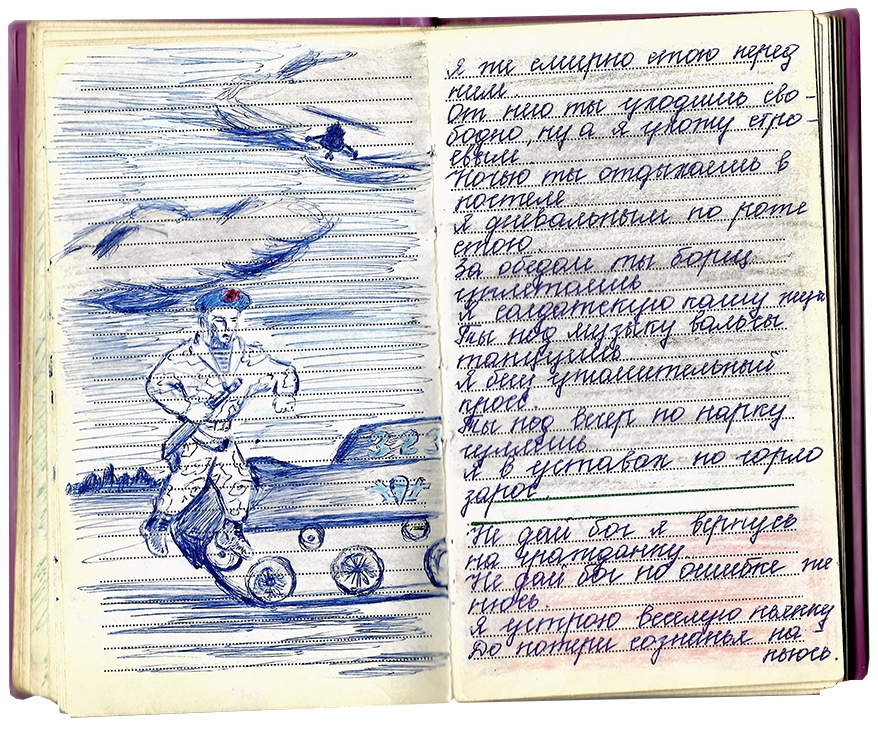 3-23
Я же смирно стою перед
ним
От нио ты уходишь сво-
бодно, ну а я ухожу стро-
евым
Ночью ты отдыхаешь в
постеле
Я дневальным по роте
стою.
За обедом ты борщ
уплетаешь
Я солдатскую кашу жую
Ты под музыку вальсы
танцуешь
Я бегу утомительный
кросс.
Ты под вечер по парку
гуляешь
Я в уставах по горло
зарос.
Не дай бог я вернусь
на гражданку.
Не дай бог по ошибке же-
нюсь.
Я устрою веселую пьянку
До потери сознанья на-
пьюсь.